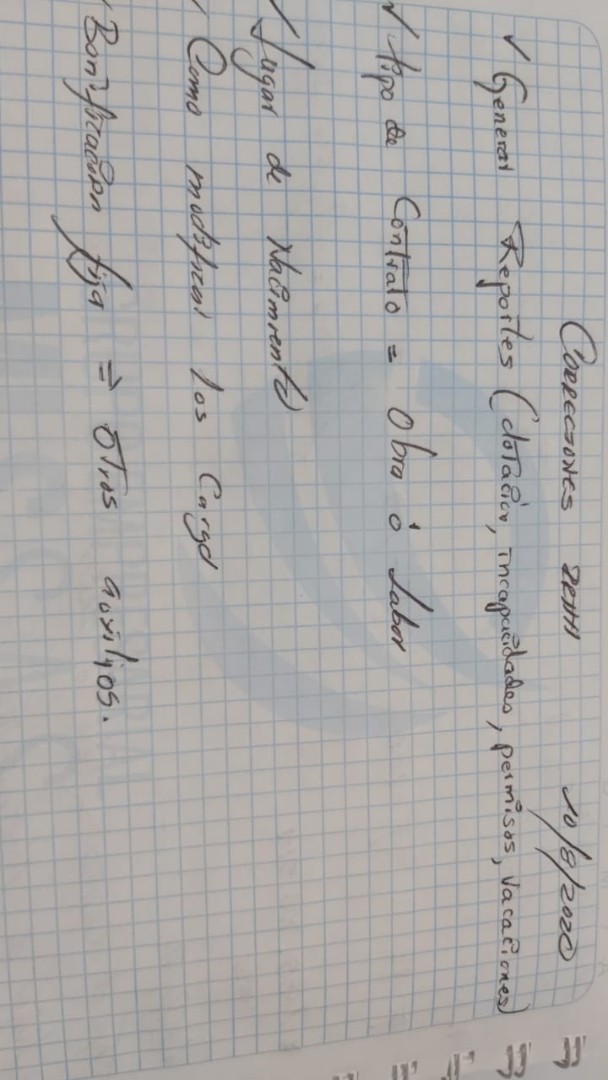 Correcciones 10/8/2020
✓ General Reportes (dotación, incapacidades, permisos, vacaciones)
✓ tipo de Contrato = Obra ó Labor
✓ Lugar de Nacimiento
✓ Como modificar los Cargo
✓ Bonificacion fija => Otros auxilios.